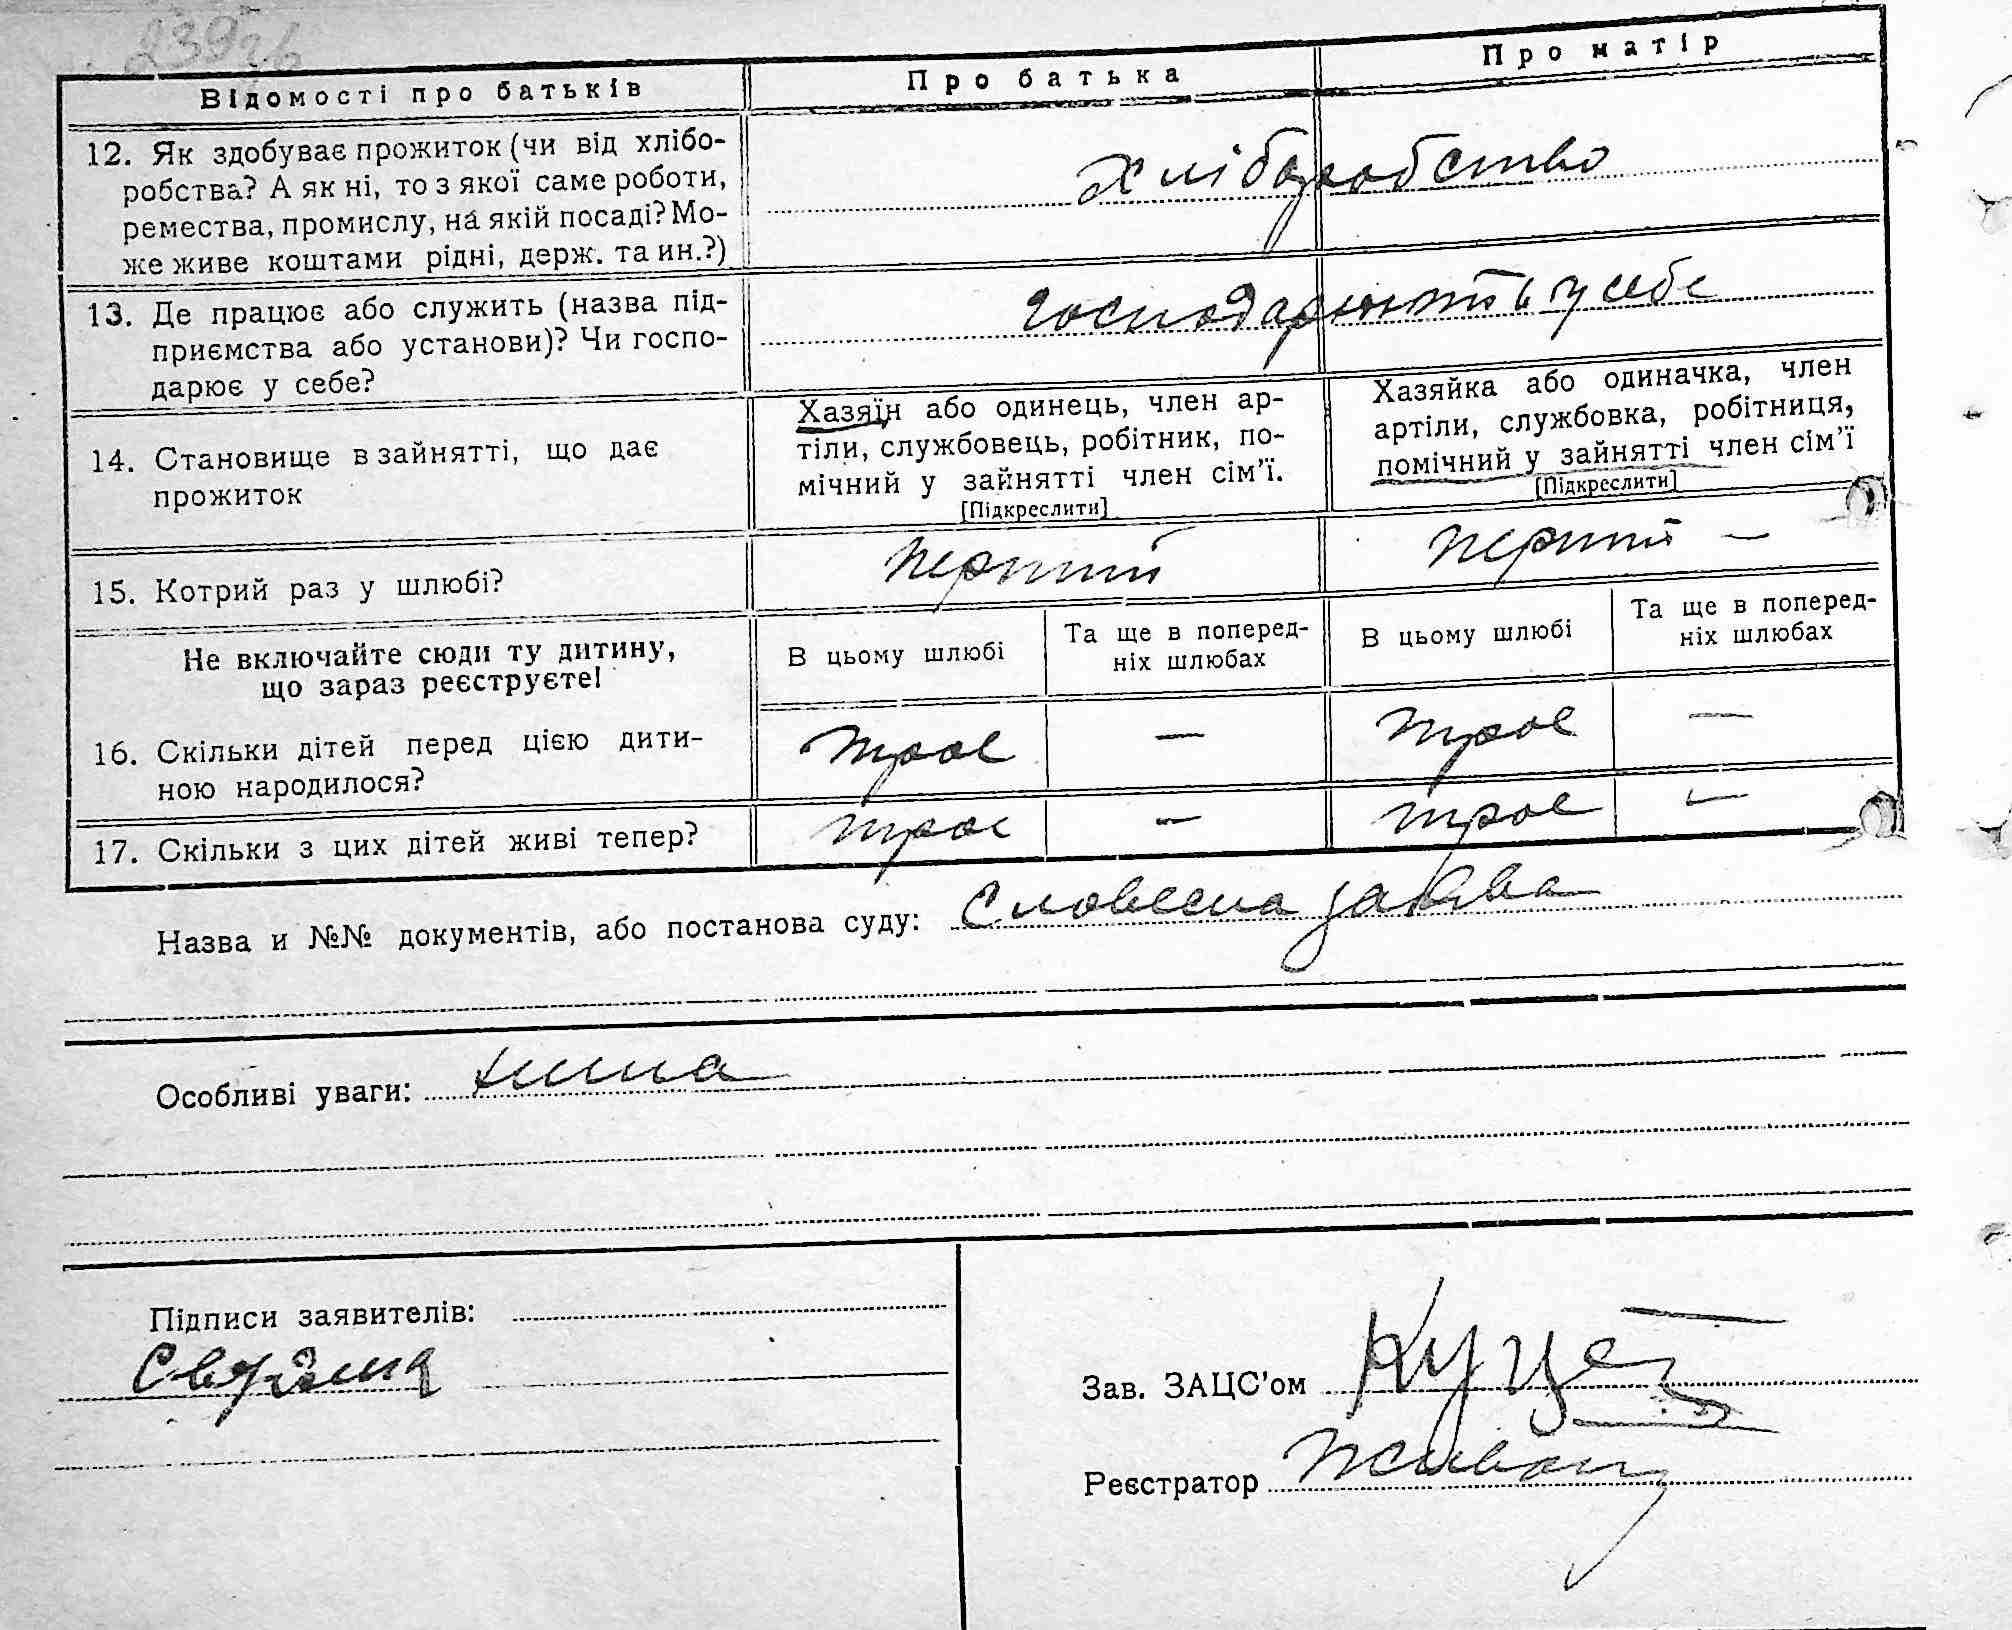 239зв
Відомості про батьків
Про батька
Про матір
12. Як здобуває прожиток (чи від хлібо-
робства? А як ні, то з якої саме роботи,
ремества, промислу, на якій посаді? Мо-
же живе коштами рідні, держ. та ин.?)
Хліборобство
13. Де працює або служить (назва під-
приємства або установи)? Чи госпо-
дарює у себе?
господарюють у себе
14. Становище в зайнятті, що дає
прожиток
Хазяїн або одинець, член ар-
тіли, службовець, робітник, по-
мічний у зайнятті член сім'ї.
[Підкреслити]
Хазяйка або одиначка, член
артіли, службовка, робітниця,
помічний у зайнятті член сім'ї
[Підкреслити]
15. Котрий раз у шлюбі?
перший
перший —
Не включайте сюди ту дитину,
що зараз реєструєте!
В цьому шлюбі
Та ще в поперед-
ніх шлюбах
В цьому шлюбі
Та ще в поперед-
ніх шлюбах
16. Скільки дітей перед цією дити-
ною народилося?
троє
—
троє
—
17. Скільки з цих дітей живі тепер?
троє
—
троє
—
Назва и №№ документів, або постанова суду: Словесна заява
Особливі уваги: нима
Підписи заявителів:
Зав. ЗАЦС'ом
Реєстратор